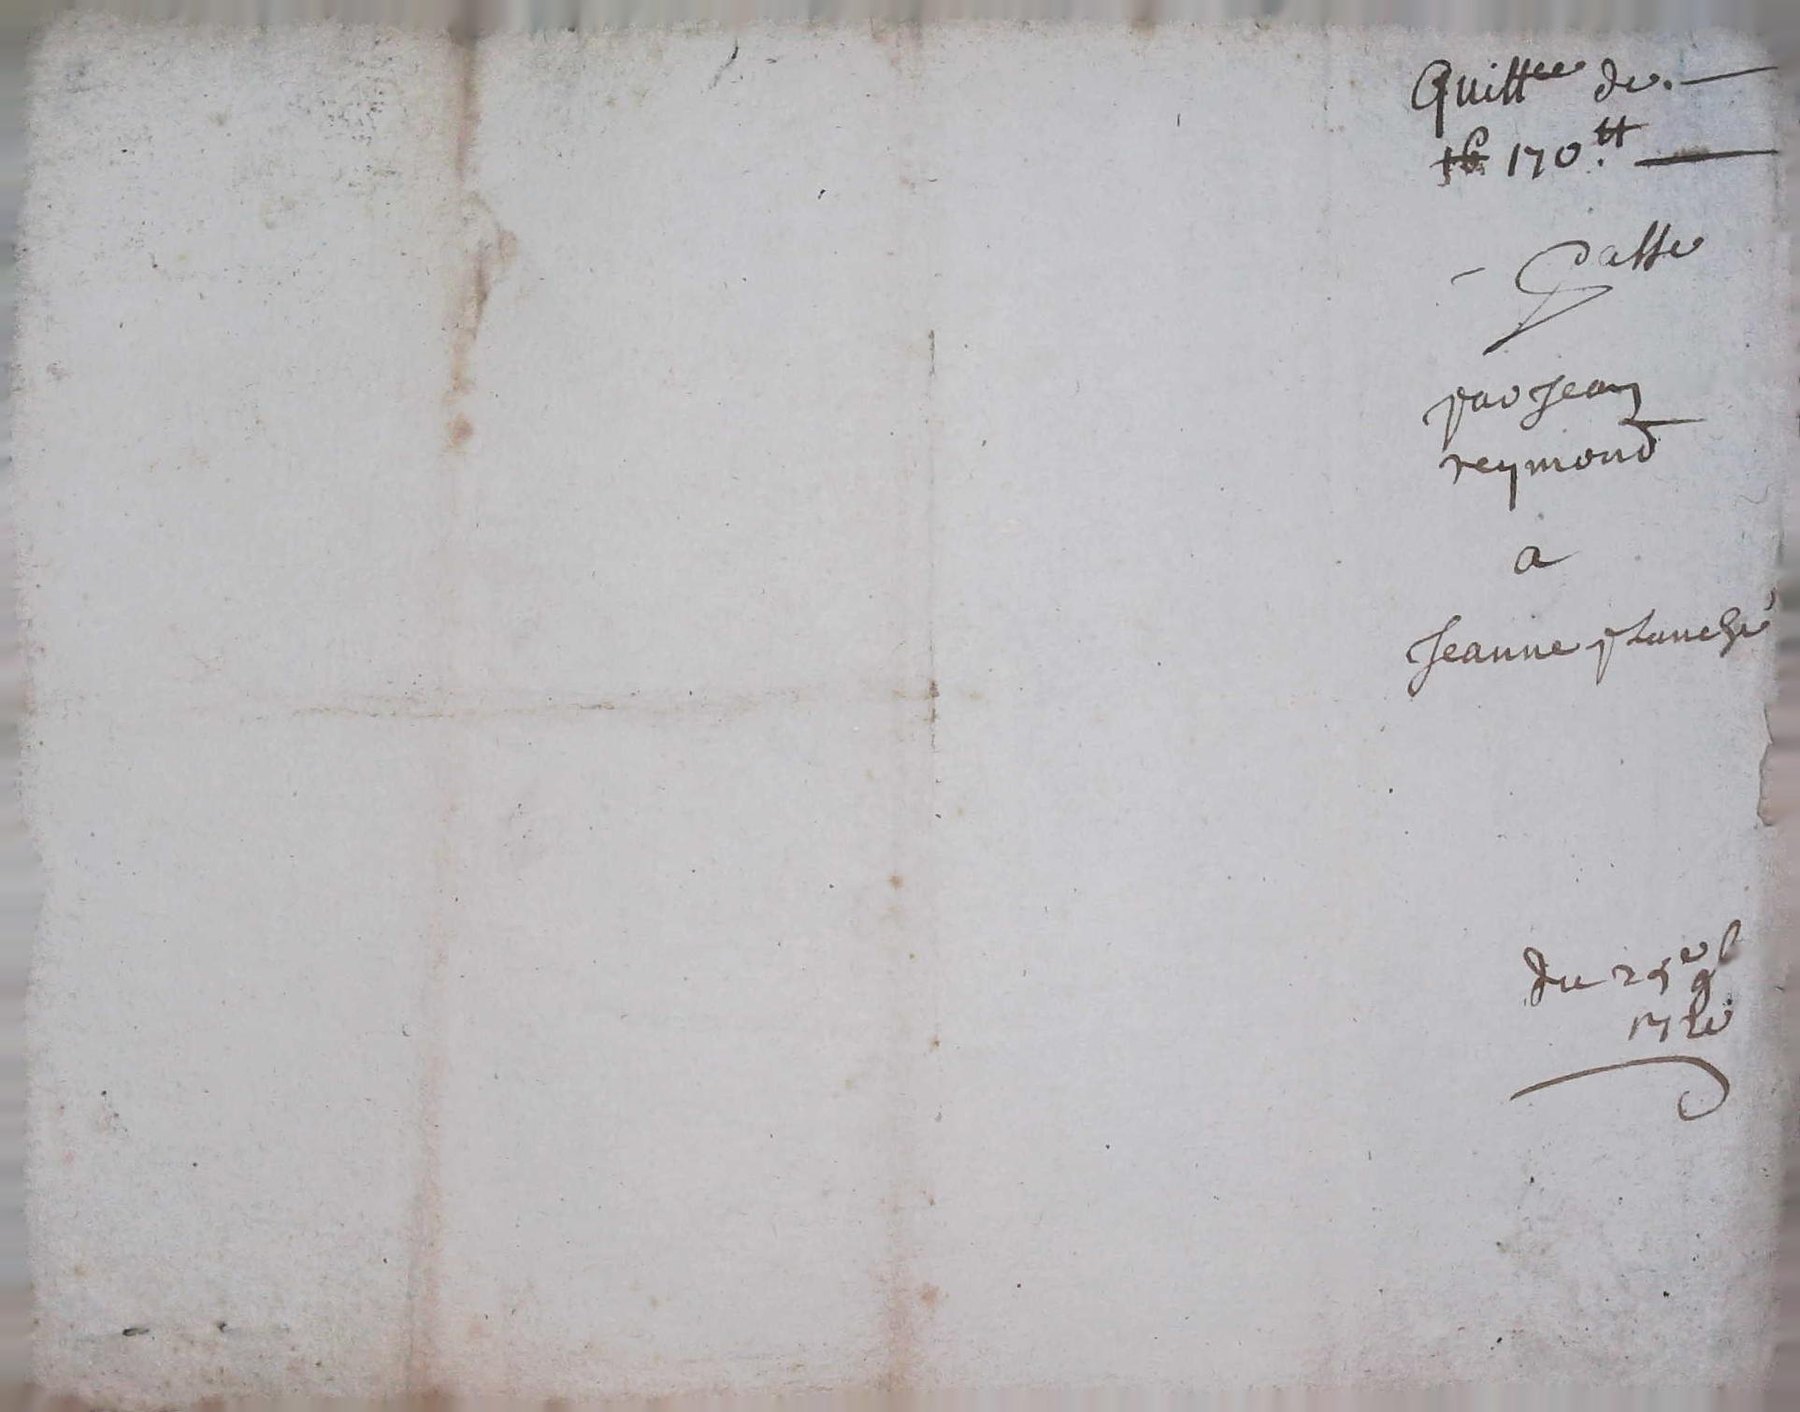 Quittce de. —
170.tt —
Passe
par Jean
reymond
a
Jeanne planche
du 25e 9b
172